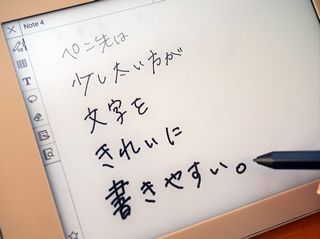 Note 4
ペン先は
少し太い方が
文字を
きれいに
書きやすい。